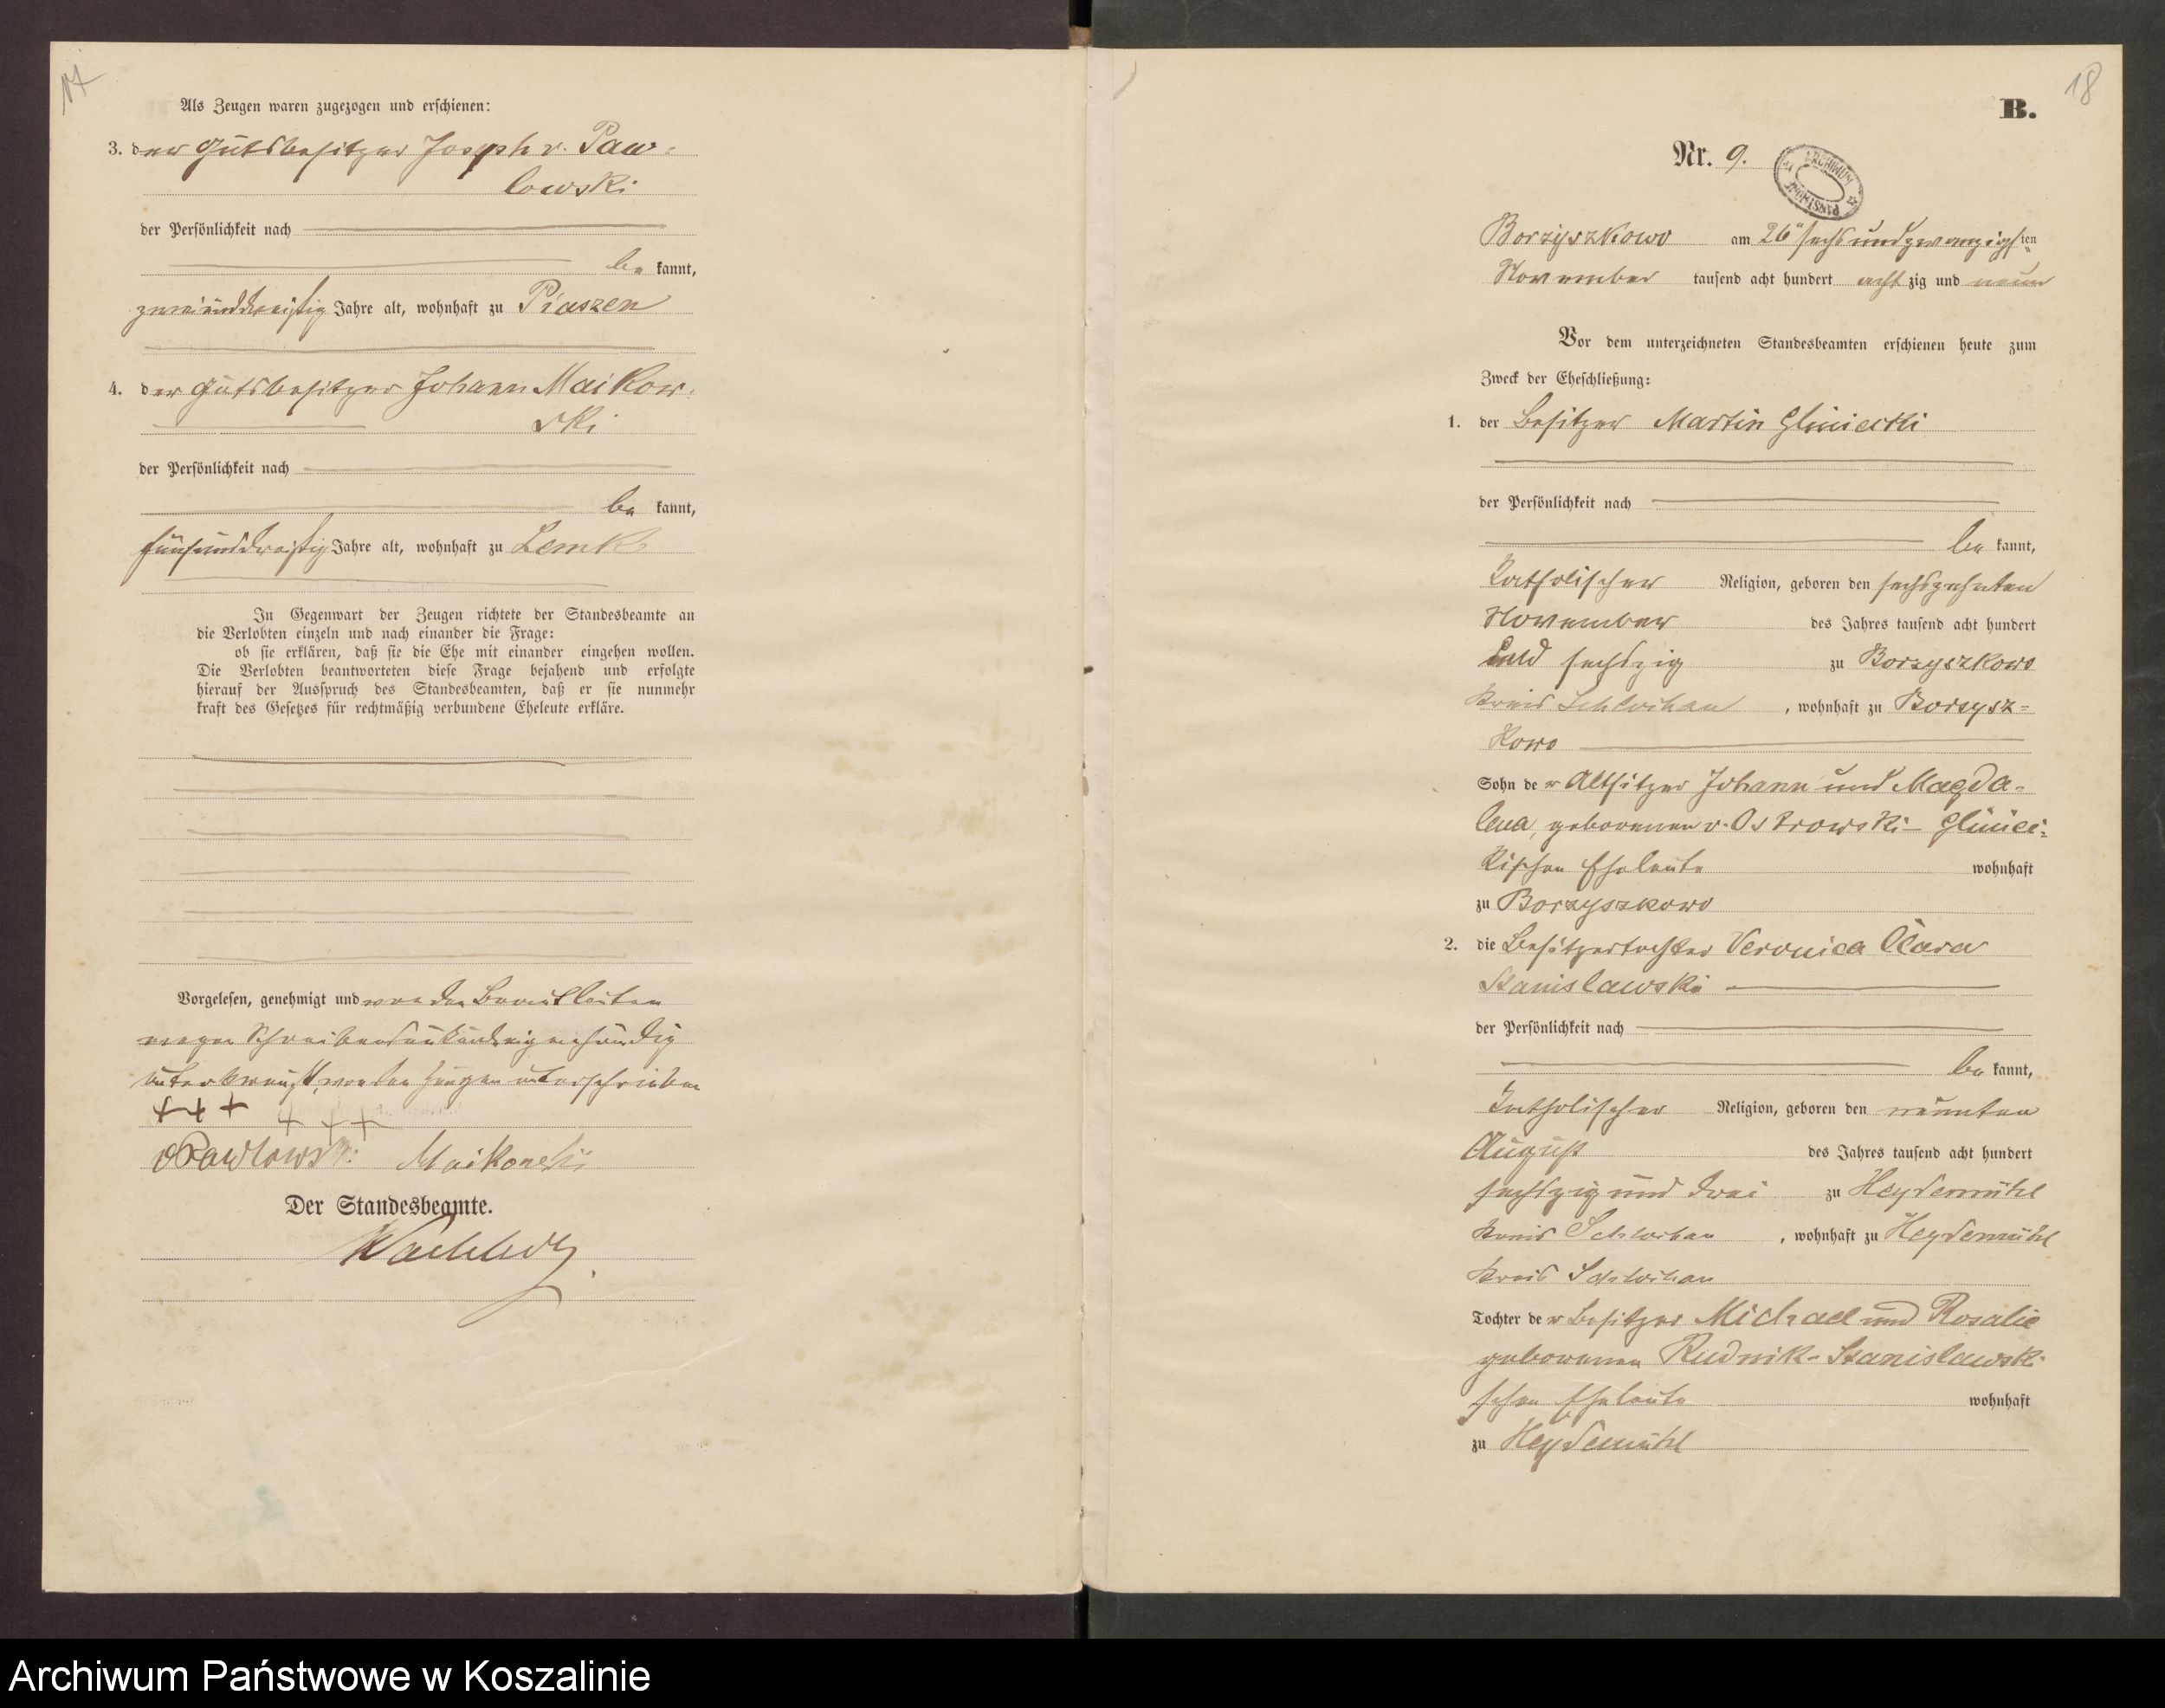 17
Als Zeugen waren zugezogen und erschienen:
3. der Gutsbesitzer Joseph v. Paw-
lowski
der Persönlichkeit nach
be kannt,
zweiunddreißig Jahre alt, wohnhaft zu Piaszen
4. der Gutsbesitzer Johann Maikow-
ski
der Persönlichkeit nach
be kannt,
fünfunddreißig Jahre alt, wohnhaft zu Lemk
In Gegenwart der Zeugen richtete der Standesbeamte an
die Verlobten einzeln und nach einander die Frage:
ob sie erklären, daß sie die Ehe mit einander eingehen wollen.
Die Verlobten beantworteten diese Frage bejahend und erfolgte
hierauf der Ausspruch des Standesbeamten, daß er sie nunmehr
kraft des Gesetzes für rechtmäßig verbundene Eheleute erkläre.
Vorgelesen, genehmigt und von den Brautleuten
wegen Schreibensunkunde eigenhändig
unterkreuzt, von den Zeugen unterschrieben
+++ +++
v Pawlowski Maikowski
Der Standesbeamte.
18
B.
Nr. 9.
ARCHIWUM PAŃSTWOWE
Borzyszkowo am 26" sechsundzwanzigsten
November tausend acht hundert acht zig und neun
Vor dem unterzeichneten Standesbeamten erschienen heute zum
Zweck der Eheschließung:
1. der Besitzer Martin Gliniecki
der Persönlichkeit nach
be kannt,
katholischer Religion, geboren den sechszehnten
November des Jahres tausend acht hundert
und sechszig zu Borzyszkowo
Kreis Schlochau, wohnhaft zu Borzysz-
kowo
Sohn der Altsitzer Johann und Magda-
lena, geborenen v. Ostrowski- Glinie-
kischen Eheleute wohnhaft
zu Borzyszkowo
2. die Besitzertochter Veronica Clara
Stanislawski
der Persönlichkeit nach
be kannt,
katholischer Religion, geboren den neunten
August des Jahres tausend acht hundert
sechszig und drei zu Heydemühl
Kreis Schlochau, wohnhaft zu Heydemühl
Kreis Schlochau
Tochter der Besitzer Michael und Rosalie
geborenen Rudnik- Stanislawski
schen Eheleute wohnhaft
zu Heydemühl
Archiwum Państwowe w Koszalinie